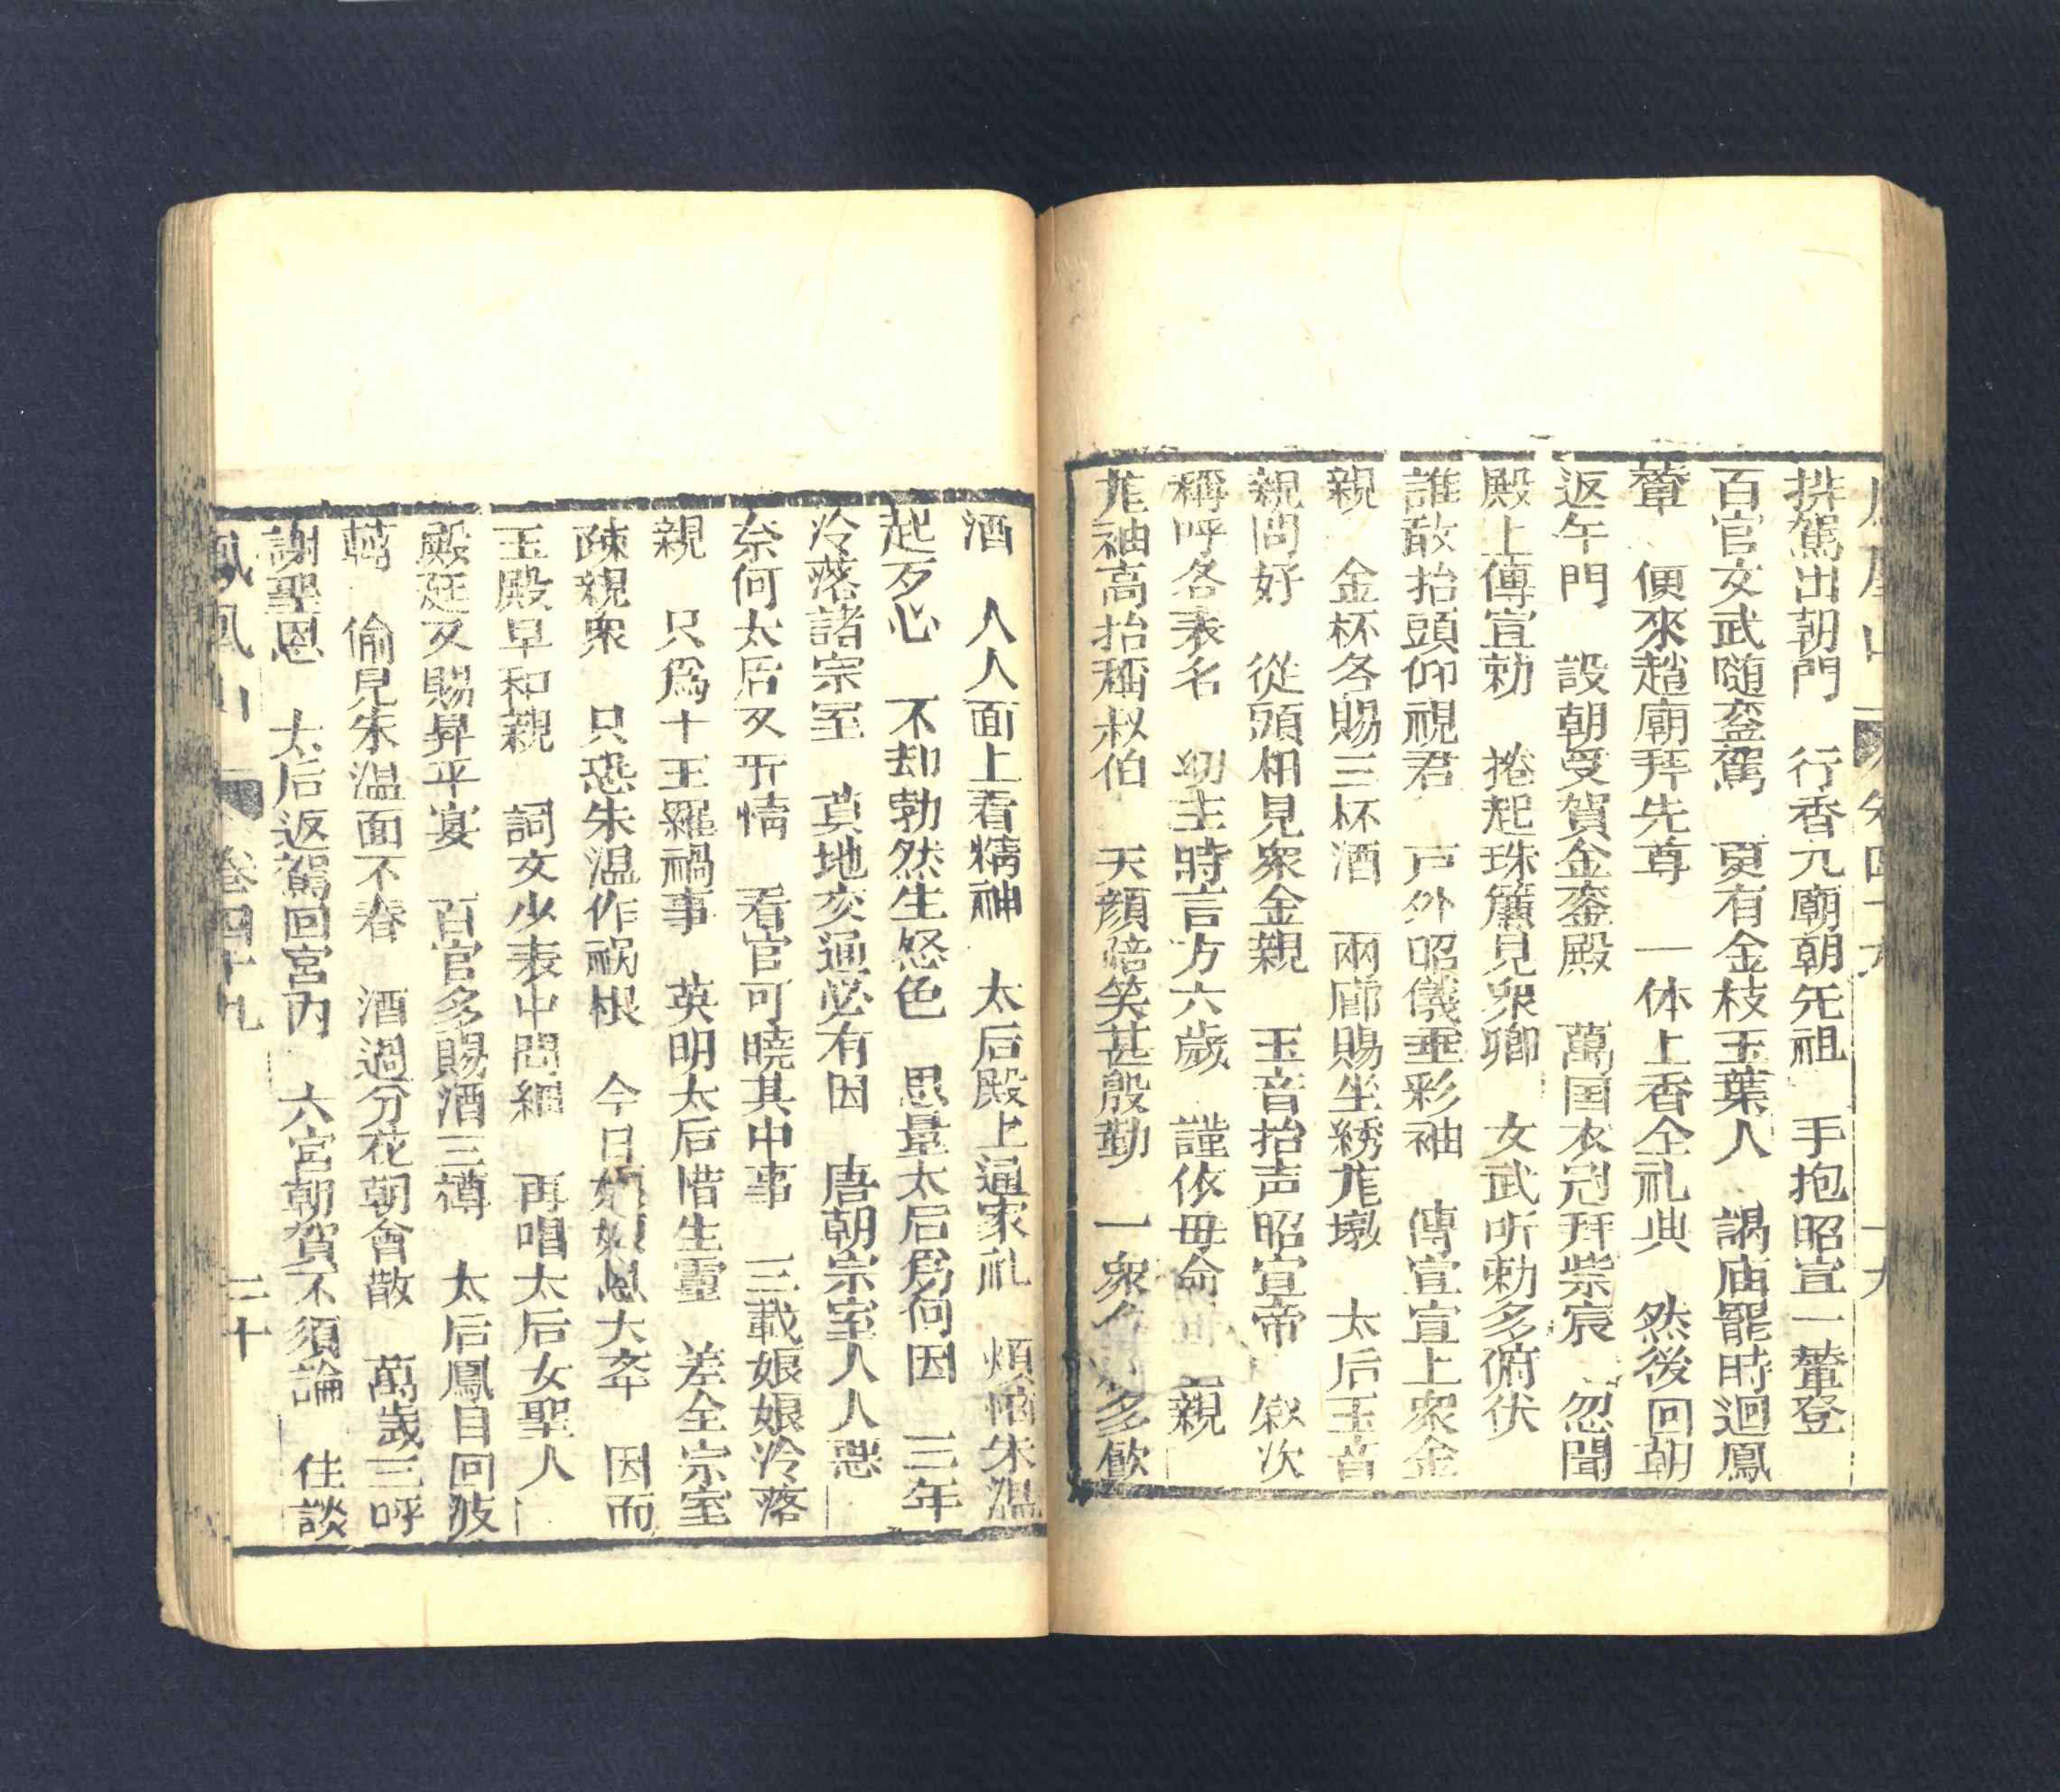 排駕出朝門　行香九廟朝先祖　手抱昭宣一輦登
百官文武随鸾駕　更有金枝玉葉人　謁庙罷時迴鳳
輦　便來趙廟拜先尊　一体上香全礼典　然後回朝
返午門　設朝受賀金鑾殿　萬国衣冠拜柴宸　忽聞
殿上傳宣勅　捲起珠簾見衆卿　文武听勅多俯伏
誰敢抬頭仰視君　戸外昭儀垂彩袖　傳宣宣上衆金
親　金杯各賜三杯酒　兩廊賜坐綉龙墩　太后玉音
親問好　從頭相見衆金親　玉音抬声昭宣帝　次
稱呼各表名　幼主時言方六歲　謹依母命　親
龙袖高抬稱叔伯　天顔啽笑甚殷勤　一衆　多飲
酒　人人面上看精神　太后殿上通家礼　煩惱朱温
起歹心　不却勃然生怒色　思量太后爲何因　三年
冷落諸宗室　莫地交通必有因　唐朝宗室人人惡
奈何太后又歹情　看官可曉其中事　三載娘娘冷落
親　只爲十王羅禍事　英明太后惜生靈　差全宗室
疎親衆　只恐朱温作祸根　今日娘娘恩大卒　因而
玉殿早和親　詞文少表中間細　再唱太后女聖人
殿廷又賜昇平宴　百官多賜酒三樽　太后鳳目回波
轉　偷見朱温面不春　酒過分花朝會散　萬歲三呼
謝聖恩　太后返駕回宮內　六宮朝賀不須論　住談
鳳凰山　卷四十九　二十